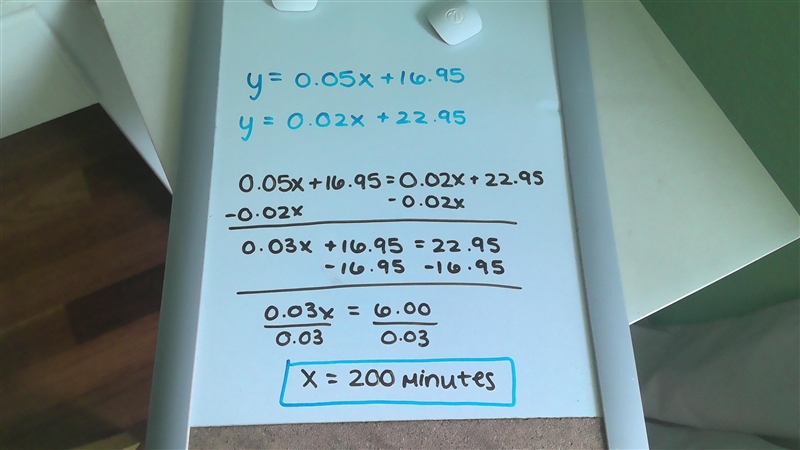 y = 0.05x + 16.95
y = 0.02x + 22.95
0.05x + 16.95 = 0.02x + 22.95
-0.02x -0.02x
0.03x + 16.95 = 22.95
-16.95 -16.95
0.03x = 6.00
0.03 0.03
x = 200 minutes